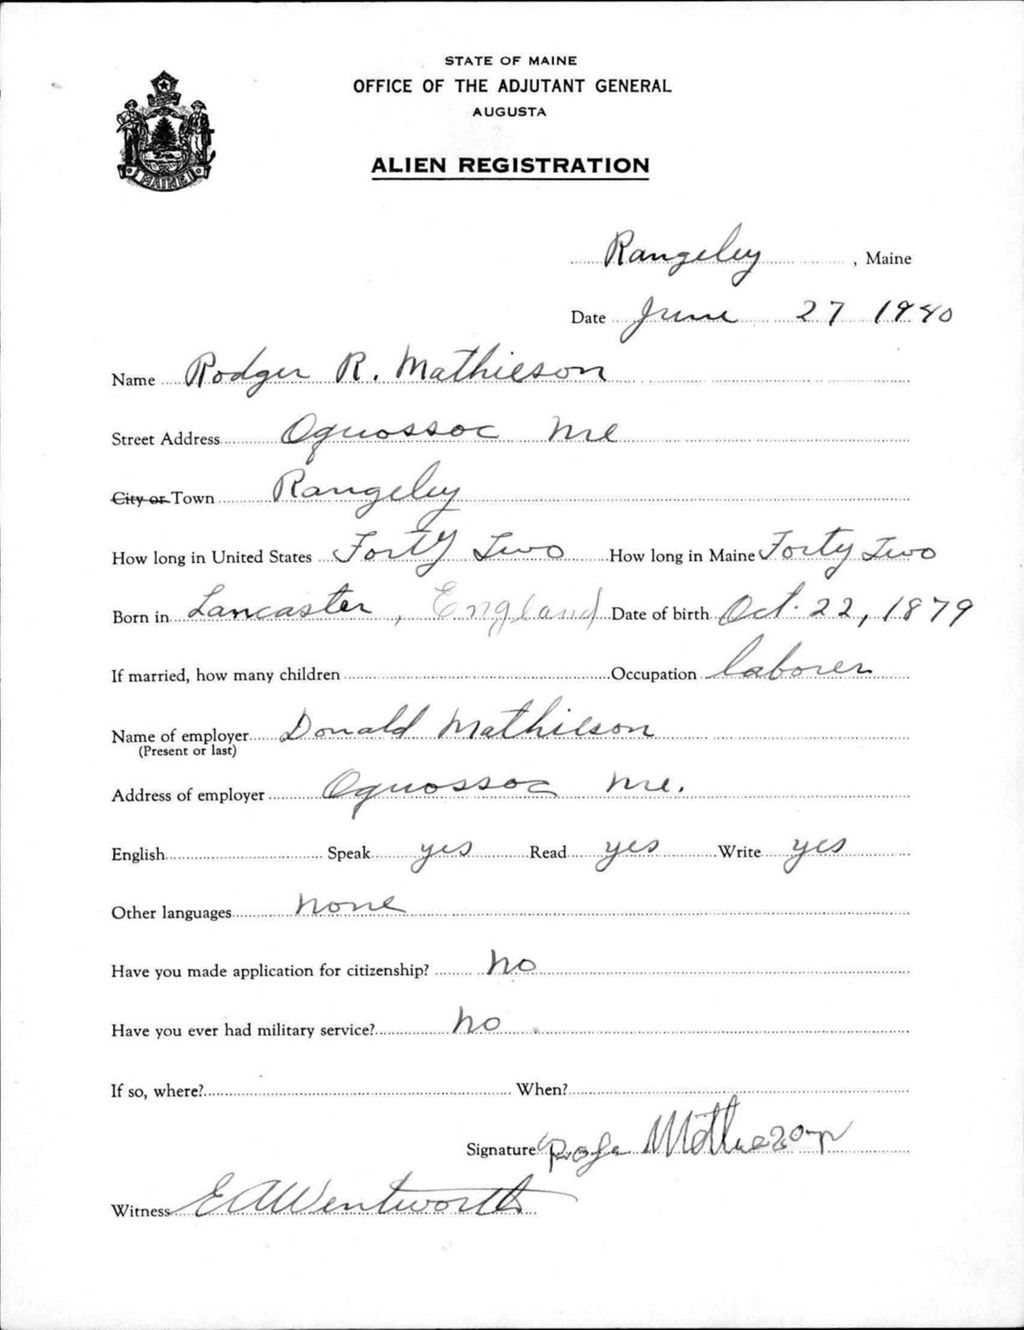 STATE OF MAINE
OFFICE OF THE ADJUTANT GENERAL
AUGUSTA
ALIEN REGISTRATION
MAINE
Rangeley, Maine
Date June 27 1940
Name Rodger R. Mathieson
Street Address Oquossoc Me
City or Town Rangeley
How long in United States Forty Two How long in Maine Forty Two
Born in Lancaster, England Date of birth Oct. 22, 1879
If married, how many children Occupation laborer
Name of employer Donald Mathieson
(Present or last)
Address of employer Oquossoc Me.
English Speak yes Read yes Write yes
Other languages none
Have you made application for citizenship? no
Have you ever had military service? no
If so, where? When?
Signature
Witness E A Wentworth